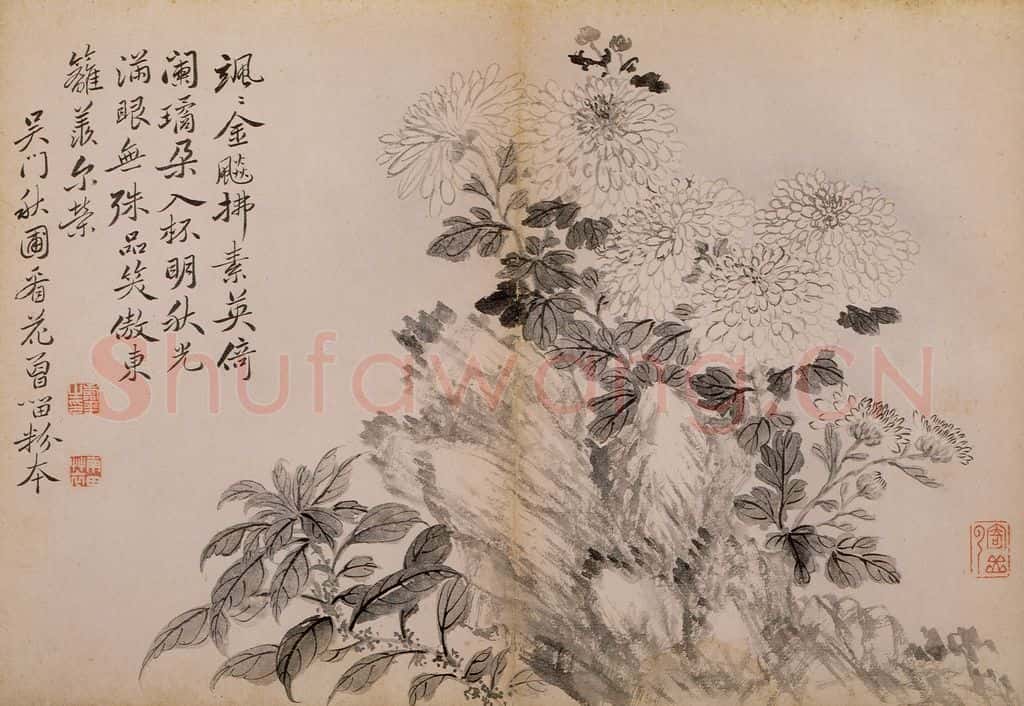 颯〻金飈拂素英倚
闌璚朵入杯明秋光
滿眼無殊品笑傲東
籬羨尔榮
吴门秋圃看花曾留粉本
Shufawang.CN